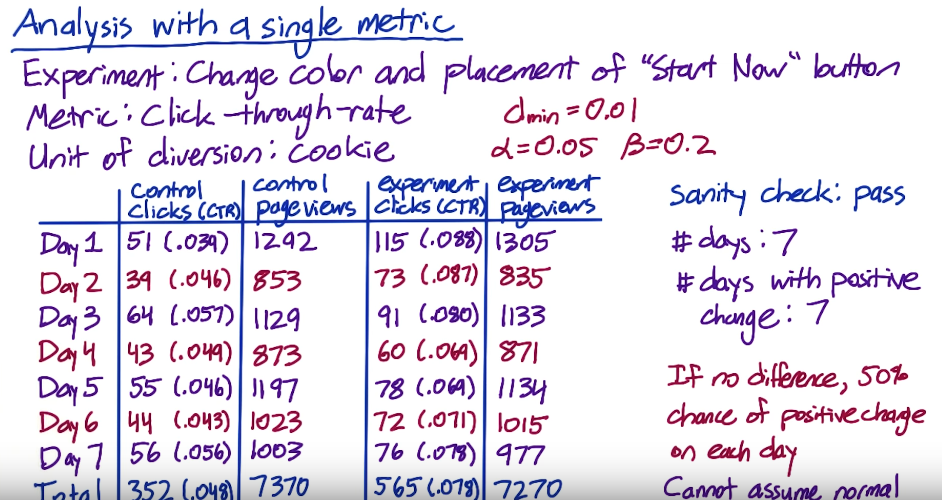 Analysis with a single metric
Experiment: Change color and placement of "Start Now" button
Metric: Click-through-rate
dmin = 0.01
Unit of diversion: cookie
α=0.05 β=0.2
Control Clicks (CTR) | control pageviews | experiment clicks (CTR) | experiment pageviews
Day 1 | 51 (.039) | 1292 | 115 (.088) | 1305
Day 2 | 39 (.046) | 853 | 73 (.087) | 835
Day 3 | 64 (.057) | 1129 | 91 (.080) | 1133
Day 4 | 43 (.049) | 873 | 60 (.069) | 871
Day 5 | 55 (.046) | 1197 | 78 (.069) | 1134
Day 6 | 44 (.043) | 1023 | 72 (.071) | 1015
Day 7 | 56 (.056) | 1003 | 76 (.078) | 977
Total | 352 (.048) | 7370 | 565 (.078) | 7270
Sanity check: pass
# days: 7
# days with positive
change: 7
If no difference, 50%
chance of positive change
on each day
Cannot assume normal